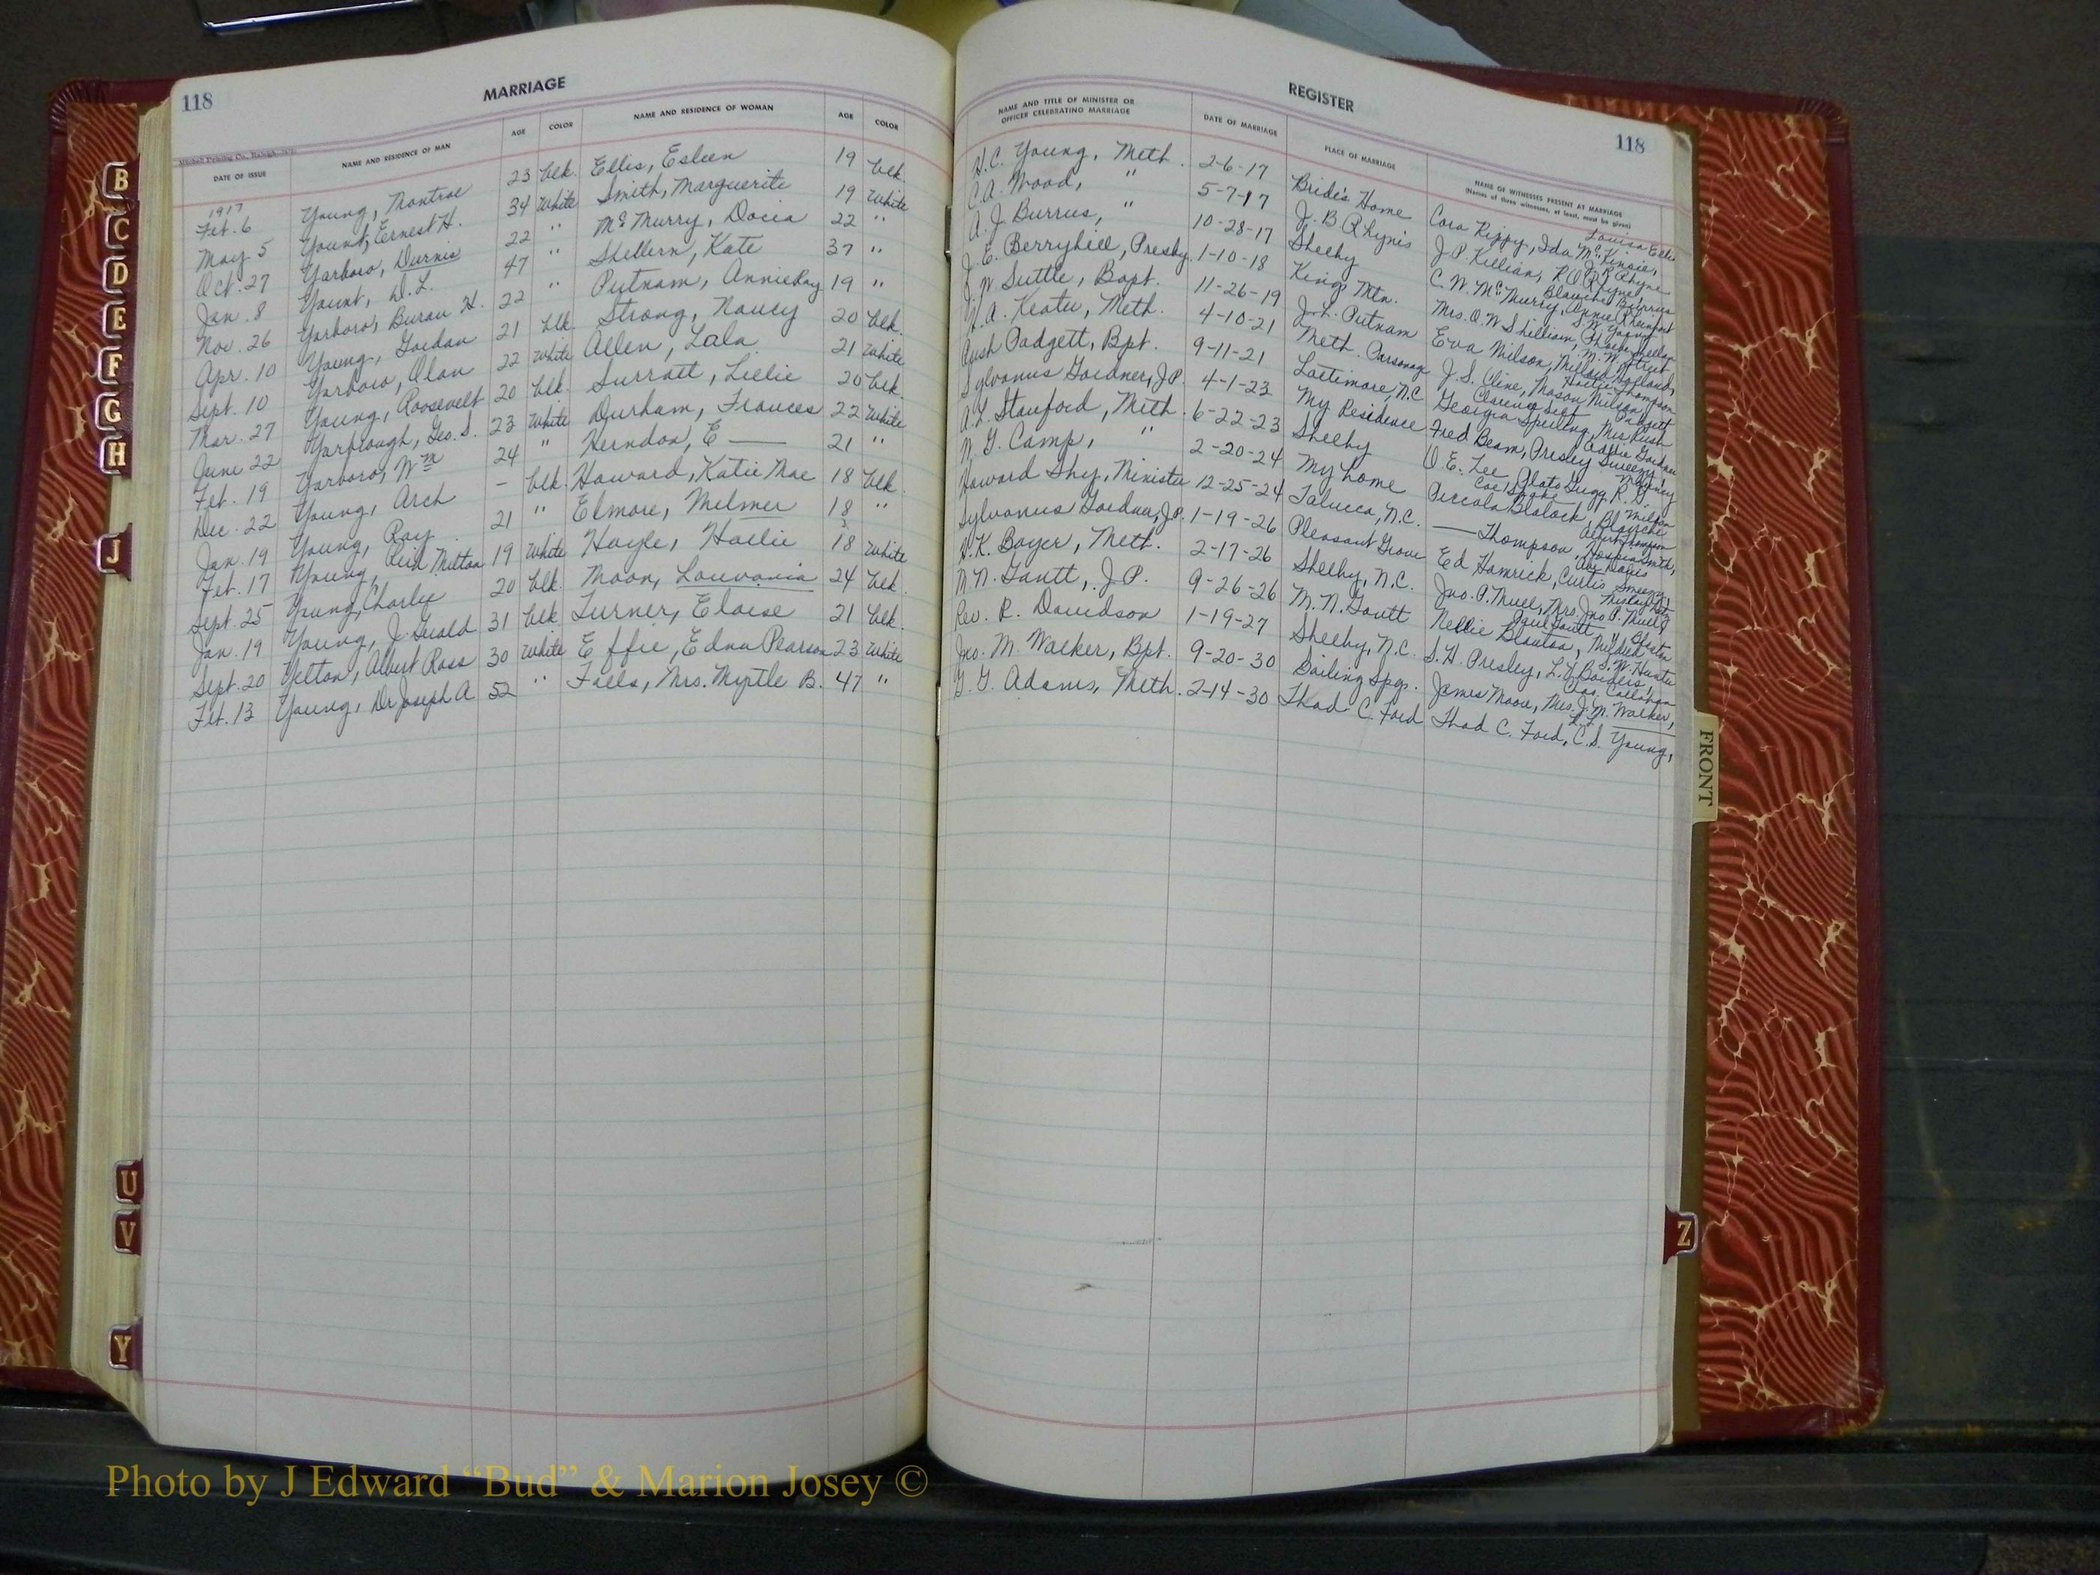 118
MARRIAGE
DATE OF ISSUE NAME AND RESIDENCE OF MAN AGE COLOR NAME AND RESIDENCE OF WOMAN AGE COLOR
1917
Feb. 6 Young, Montroe 23 blk. Ellis, Esleen 19 blk.
May 5 Yount, Ernest H. 34 White Smith, Marguerite 19 White
Oct. 27 Yarboro, Durnis 22 " McMurry, Docia 22 "
Jan. 8 Yount, D. L. 47 " Shillern, Kate 37 "
Nov. 26 Yarboro, Buran H. 22 " Putnam, Annie Ray 19 "
Apr. 10 Young, Gordan 21 blk. Strong, Naucy 20 blk.
Sept. 10 Yarboro, Olan 22 White Allen, Lala 21 White
Mar. 27 Young, Roosevelt 20 blk. Surratt, Lillie 20 blk.
June 22 Yarbrough, Geo. S. 23 White Durham, Frances 22 White
Feb. 19 Yarboro, Wm 24 " Herndon, E — 21 "
Dec. 22 Young, Arch - blk. Howard, Katie Mae 18 blk.
Jan. 19 Young, Roy 21 " Elmore, Wilmer 18 "
Feb. 17 Young, Reid Milton 19 White Hoyle, Hallie 18 White
Sept. 25 Young, Charlie 20 blk. Moon, Louvania 24 blk.
Jan. 19 Young, J. Guald 31 blk Turner, Eloise 21 blk.
Sept. 20 Yelton, Albert Ross 30 White Effie, Edna Pearson 23 White
Feb. 13 Young, Dr Joseph A. 52 " Falls, Mrs. Myrtle B. 47 "
REGISTER
118
NAME AND TITLE OF MINISTER OR OFFICER CELEBRATING MARRIAGE DATE OF MARRIAGE PLACE OF MARRIAGE NAME OF WITNESSES PRESENT AT MARRIAGE
(Names of three witnesses, at least, must be given)
H.C. Young, Meth. 2-6-17 Bride's Home Cora Kippy, Ida McKinsie, Louisa Ellis
C.A. Wood, " 5-7-17 J. B Rhynis J. P. Killian, R O Rhyne, J. R. Rhyne
A. J. Burrus, " 10-28-17 Shelby C. W. McMurry, Blanche Burrus
J. E. Berryhill, Presby. 1-10-18 Kings Mtn. Mrs. O. W Shilliam,
J. W Suttle, Bapt. 11-26-19 J. L. Putnam Eva Wilson,
Y. A. Keater, Meth. 4-10-21 Meth. Parsonage J. S. Cline, Mason Wilson, Hattie Thompson
Rush Padgett, Bpt. 9-11-21 Lattimore, N.C. Georgia Spurling, Mrs Rush Padgett
Sylvanus Gardner, J.P. 4-1-23 My Residence Fred Beam, Presley Sweezy, Addie Gardner
A. L. Stanford, Meth. 6-22-23 Shelby O. E. Lee, Plato
W. G. Camp, " 2-20-24 My home Piccola Blalock, Blanche
Howard Shy, Minister 12-25-24 Taluca, N.C. — Thompson, Albert Thompson
Sylvanus Gardner, J.P. 1-19-26 Pleasant Grove Ed Hamrick, Curtis Sweezy,
H. K. Boyer, Meth. 2-17-26 Shelby, N.C. Jno. P. Mull, Mrs. Jno. P. Mull,
M. N. Gantt, J. P. 9-26-26 M. N. Gantt Nellie Blanton, Mildred Blanton
Rev. R. Davidson 1-19-27 Shelby, N.C. S. H. Presley, S. W. Hunter
Jno. M. Walker, Bpt. 9-20-30 Boiling Spgs. James Moore, Mrs. J. M. Walker,
G. G. Adams, Meth. 2-14-30 Thad C. Ford Thad C. Ford, C. S. Young,
B
C
D
E
F
G
H
J
U
V
Y
FRONT
Z
Photo by J Edward “Bud” & Marion Josey ©